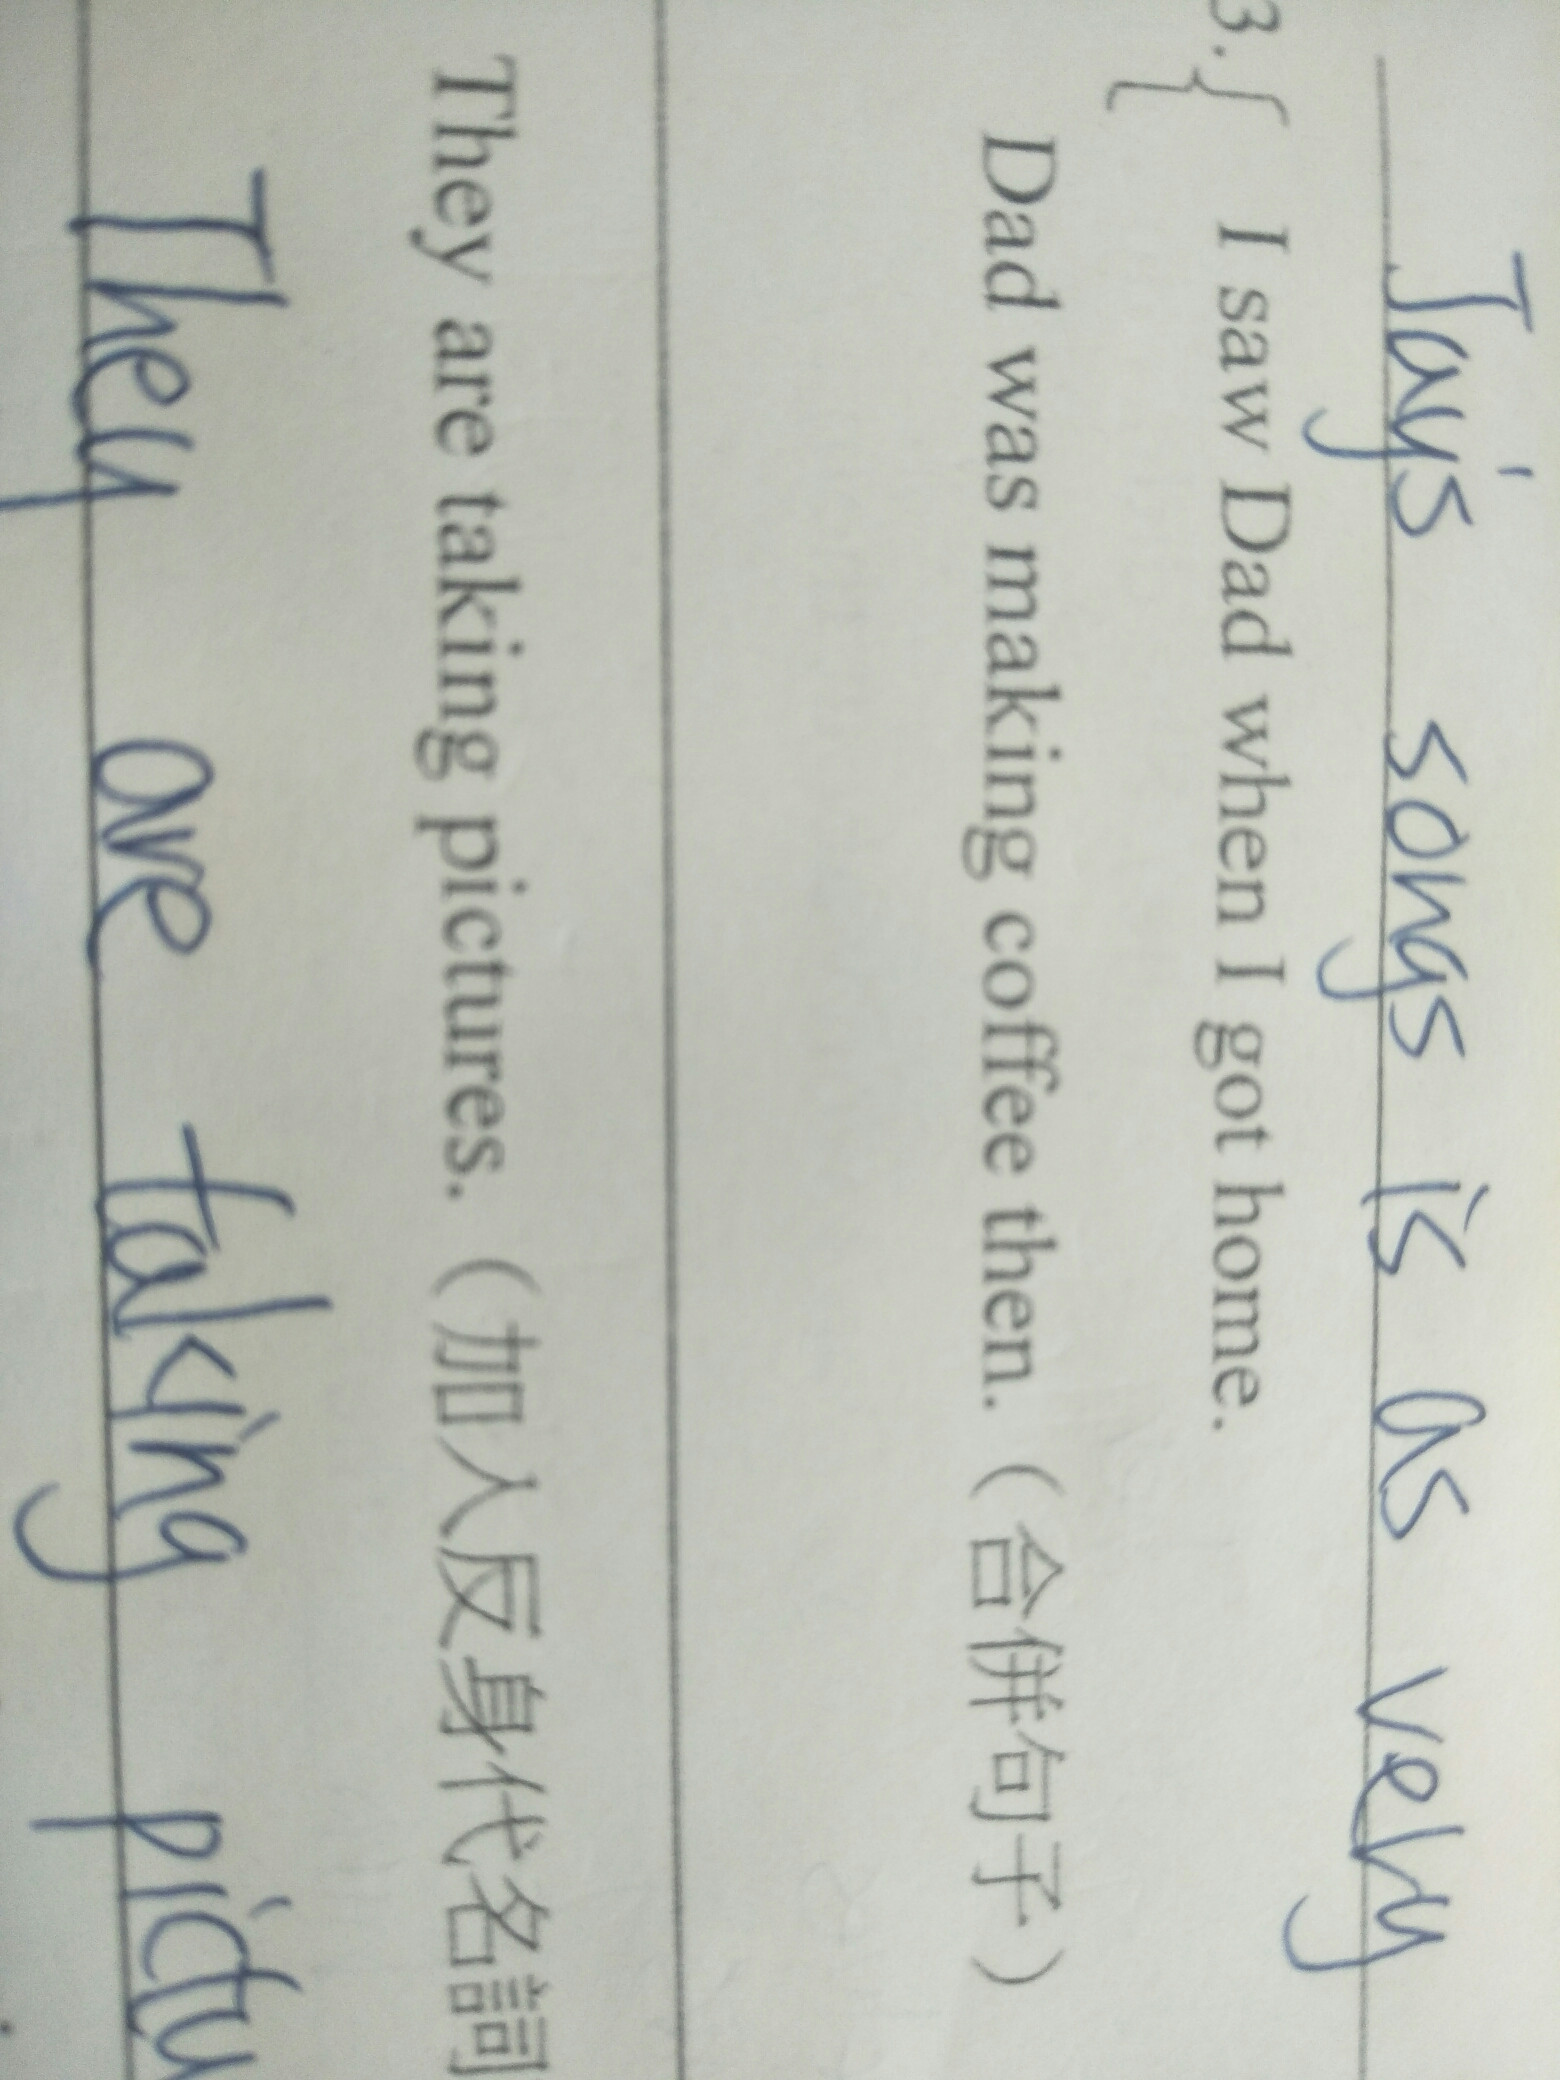 Jay's songs is as very
3. { I saw Dad when I got home.
Dad was making coffee then.（合併句子）
They are taking pictures.（加入反身代名詞
They are taking pictu